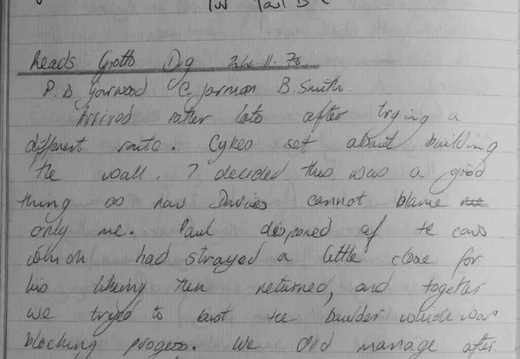 Reads Grotto Dig 26.11.72
P. D Yarwood C. Jarman B. Smith.
Arrived rather late after trying a
different route. Cykes set about building
the wall. I decided this was a good
thing as now Davies cannot blame
only me. Paul disposed of te cows
which had strayed a little close for
his liking then returned, and together
we tryed to bust te boulder which was
blocking progess. We did manage after